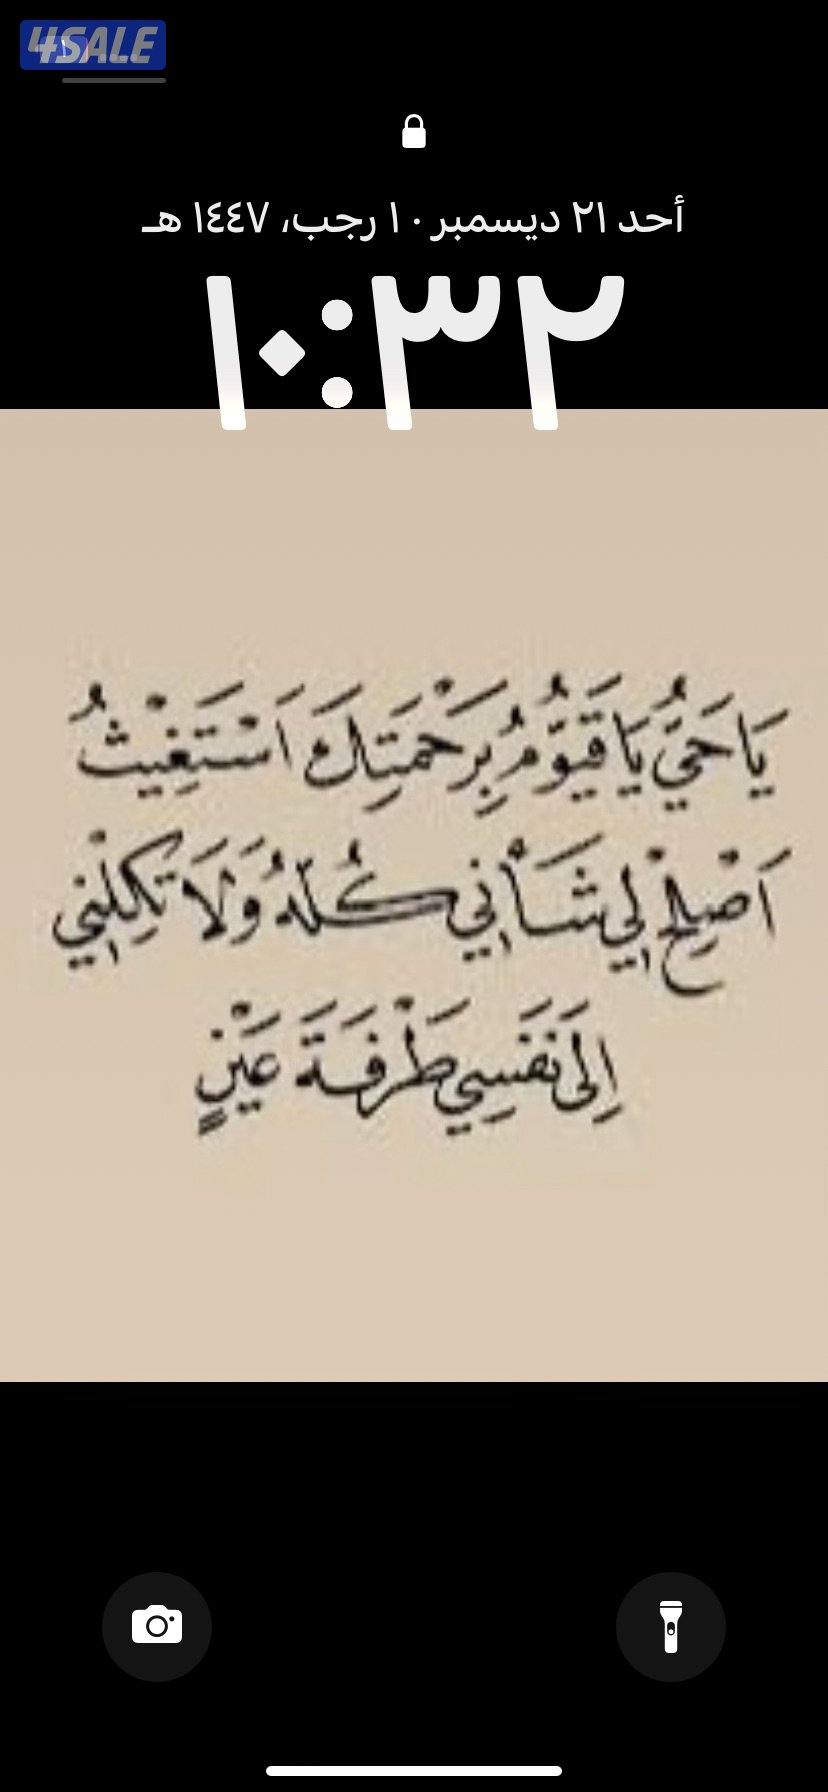 4SALE
أحد ٢١ ديسمبر · ١ رجب، ١٤٤٧ هـ
١٠:٣٢
يَا حَيُّ يَا قَيُّومُ بِرَحْمَتِكَ اَسْتَغِيْثُ
اَصْلِحْ لِي شَأْنِي كُلَّهُ وَلَا تَكِلْنِي
اِلَى نَفْسِي طَرْفَةَ عَيْنٍ